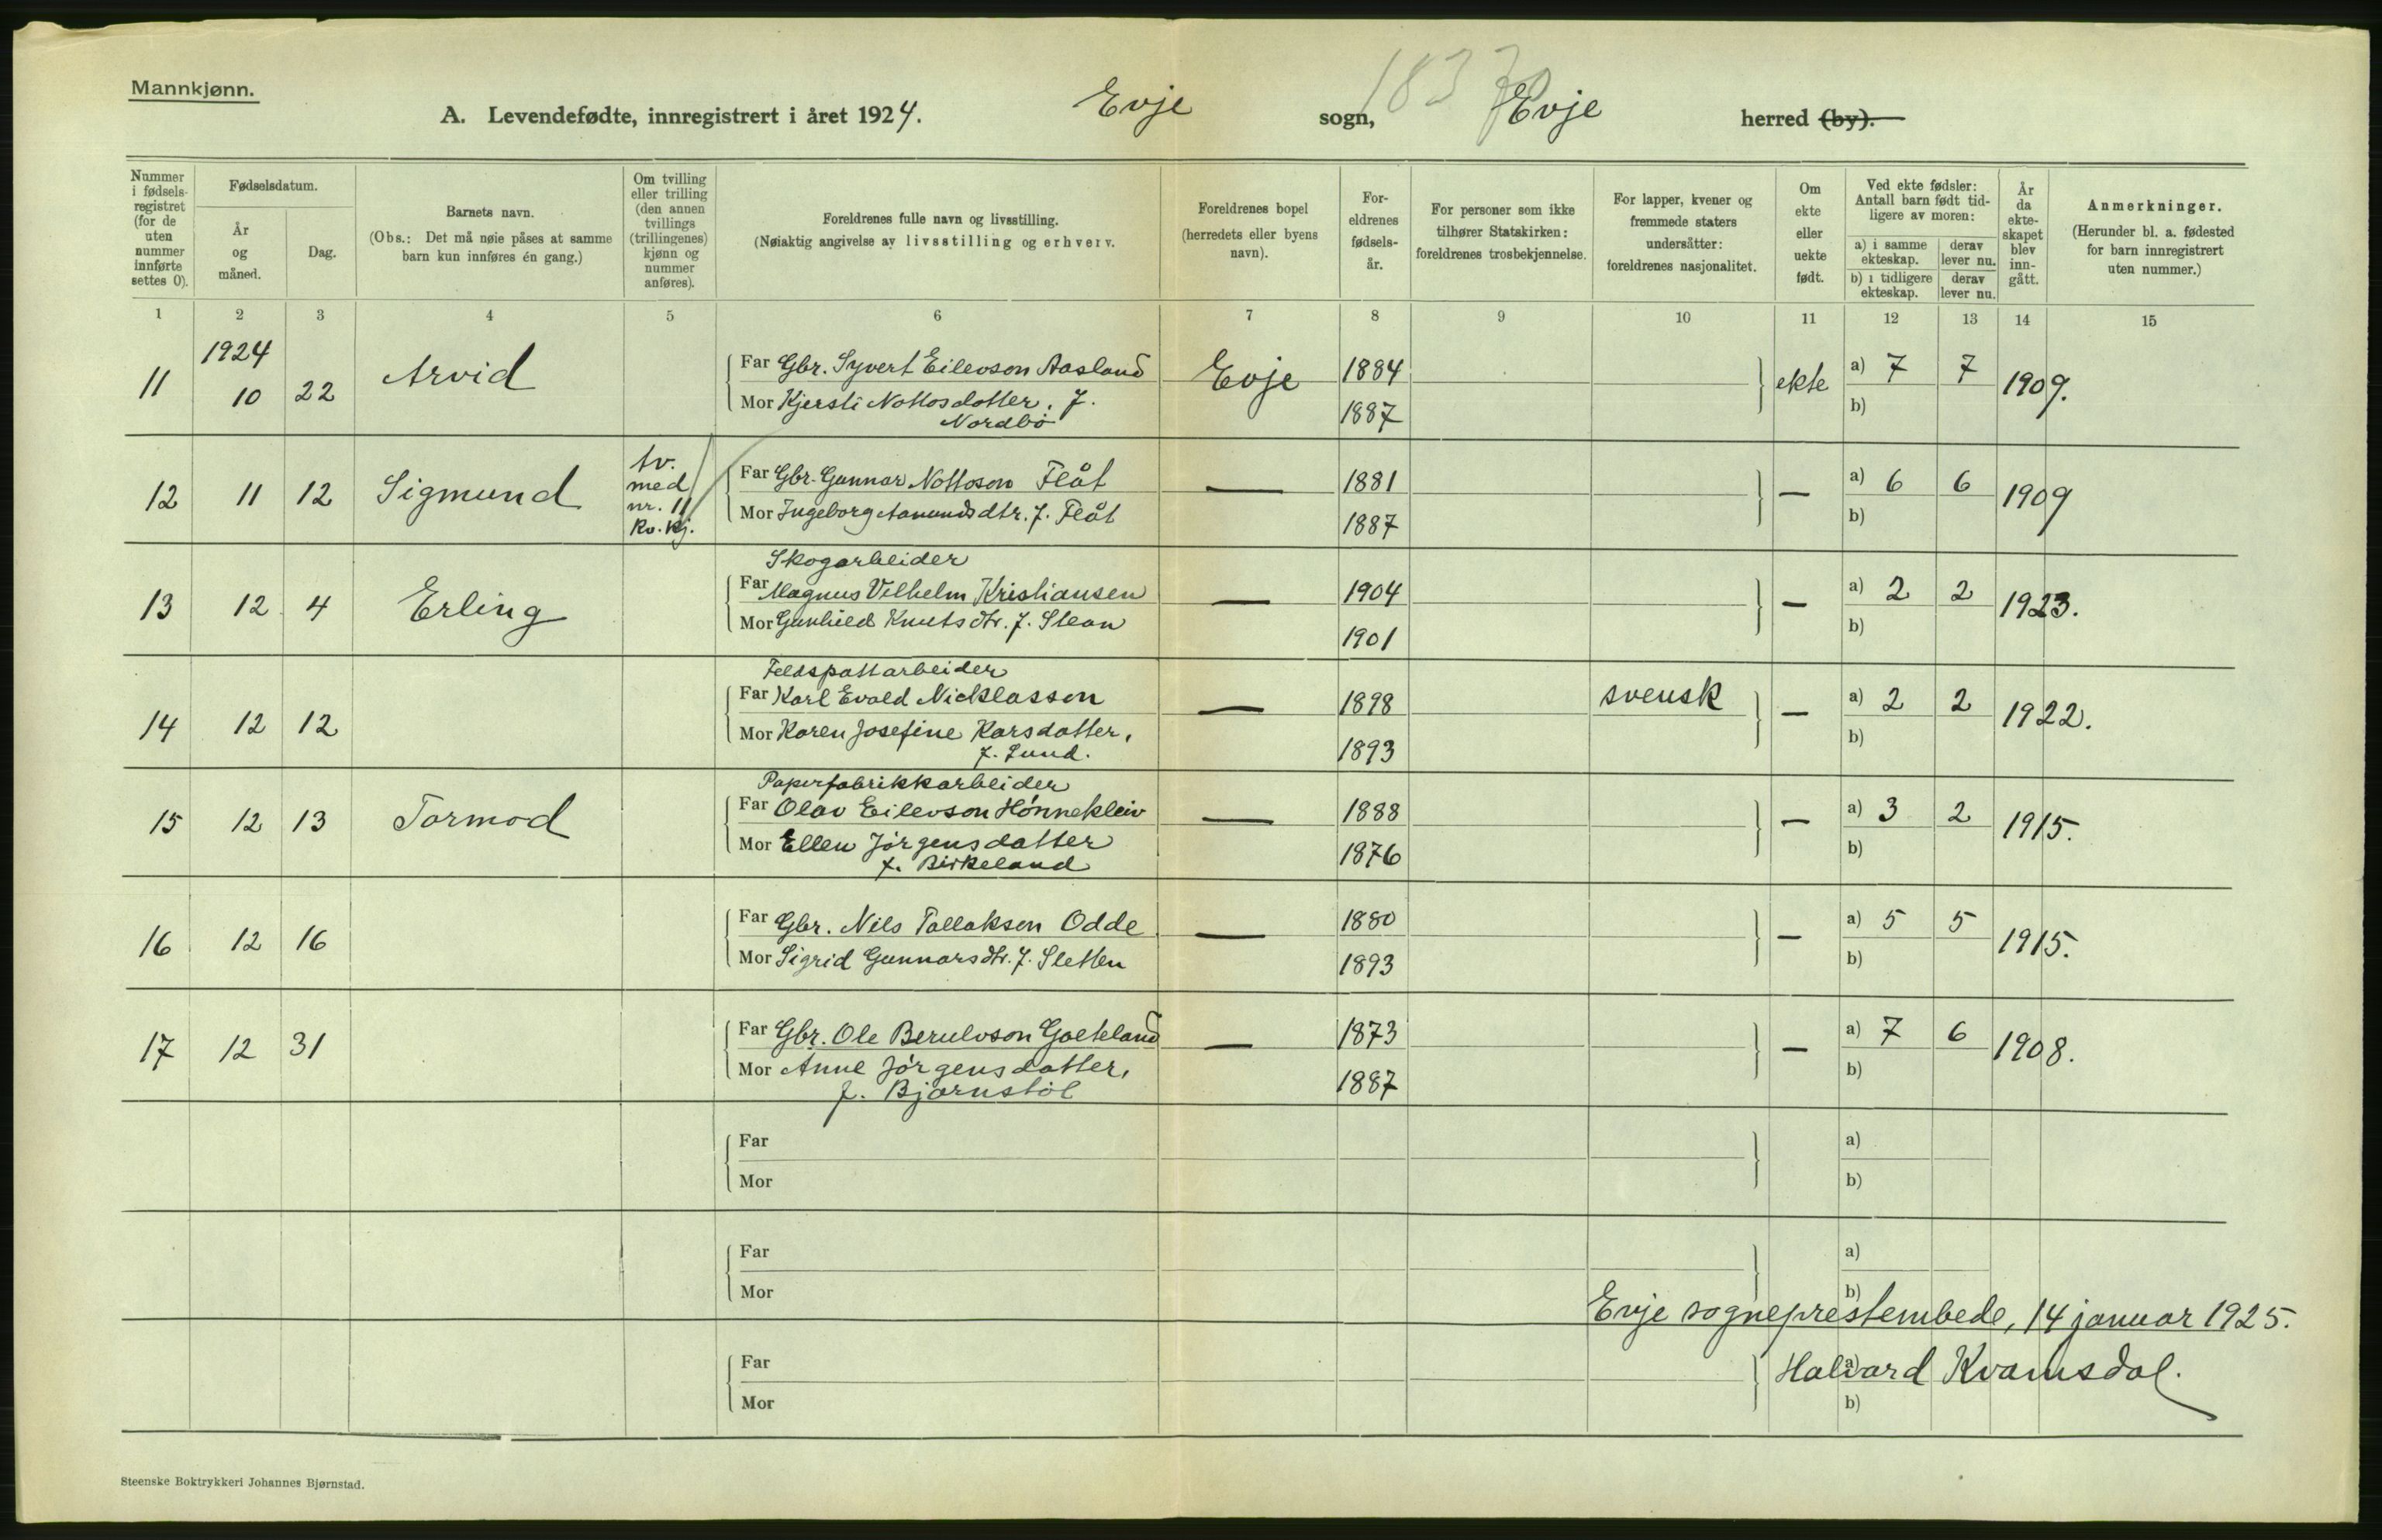 Mannkjønn.
A. Levendefødte, innregistrert i året 1924. Evje sogn, Evje herred (by).
Nummer i fødsels-registret (for de uten nummer innførte settes 0).
Fødselsdatum.
År og måned.
Dag.
Barnets navn.
(Obs.: Det må nøie påses at samme barn kun innføres én gang.)
Om tvilling eller trilling (den annen tvillings (trillingenes) kjønn og nummer anføres).
Foreldrenes fulle navn og livsstilling.
(Nøiaktig angivelse av livsstilling og erhverv.
Foreldrenes bopel (herredets eller byens navn).
For-eldrenes fødsels-år.
For personer som ikke tilhører Statskirken: foreldrenes trosbekjennelse.
For lapper, kvener og fremmede staters undersåtter: foreldrenes nasjonalitet.
Om ekte eller uekte født.
Ved ekte fødsler: Antall barn født tid-ligere av moren:
a) i samme ekteskap.
derav lever nu.
b) i tidligere ekteskap.
derav lever nu.
År da ekte-skapet blev inn-gått.
Anmerkninger.
(Herunder bl. a. fødested for barn innregistrert uten nummer.)
1 2 3 4 5 6 7 8 9 10 11 12 13 14 15
1924
11 10 22 Arvid Far Gbr. Syvert Eilevson Aasland Evje 1884 ekte a) 7 7 1909.
Mor Kjersti Nottosdotter, f. 1887 b)
Nordbø
12 11 12 Sigmund tv. med nr. 11 kv. kj. Far Gbr. Gunnar Nottoson Flåt — 1881 — a) 6 6 1909
Mor Ingeborg Aanundsdtr. f. Flåt 1887 b)
Skogarbeider
13 12 4 Erling Far Magnus Vilhelm Kristiansen — 1904 — a) 2 2 1923.
Mor Gunhild Knutsdtr. f. Stean 1901 b)
Feldspattarbeider
14 12 12 Far Karl Evald Nicklasson — 1898 svensk — a) 2 2 1922.
Mor Karen Josefine Karsdatter, 1893 b)
f. Lund.
Paperfabrikkarbeider
15 12 13 Tormod Far Olav Eilevson Hønnekleiv — 1888 — a) 3 2 1915.
Mor Ellen Jørgensdatter 1876 b)
f. Birkeland
16 12 16 Far Gbr. Nils Tallaksen Odde — 1880 — a) 5 5 1915.
Mor Sigrid Gunnarsdtr. f. Sletten 1893 b)
17 12 31 Far Gbr. Ole Berulvson Gaeteland — 1873 — a) 7 6 1908.
Mor Anne Jørgensdatter, 1887 b)
f. Bjørnstøl
Far a)
Mor b)
Far a)
Mor b)
Evje sogneprestembede, 14 januar 1925.
Far a)
Halvard Kvamsdal.
Mor b)
Steenske Boktrykkeri Johannes Bjørnstad.